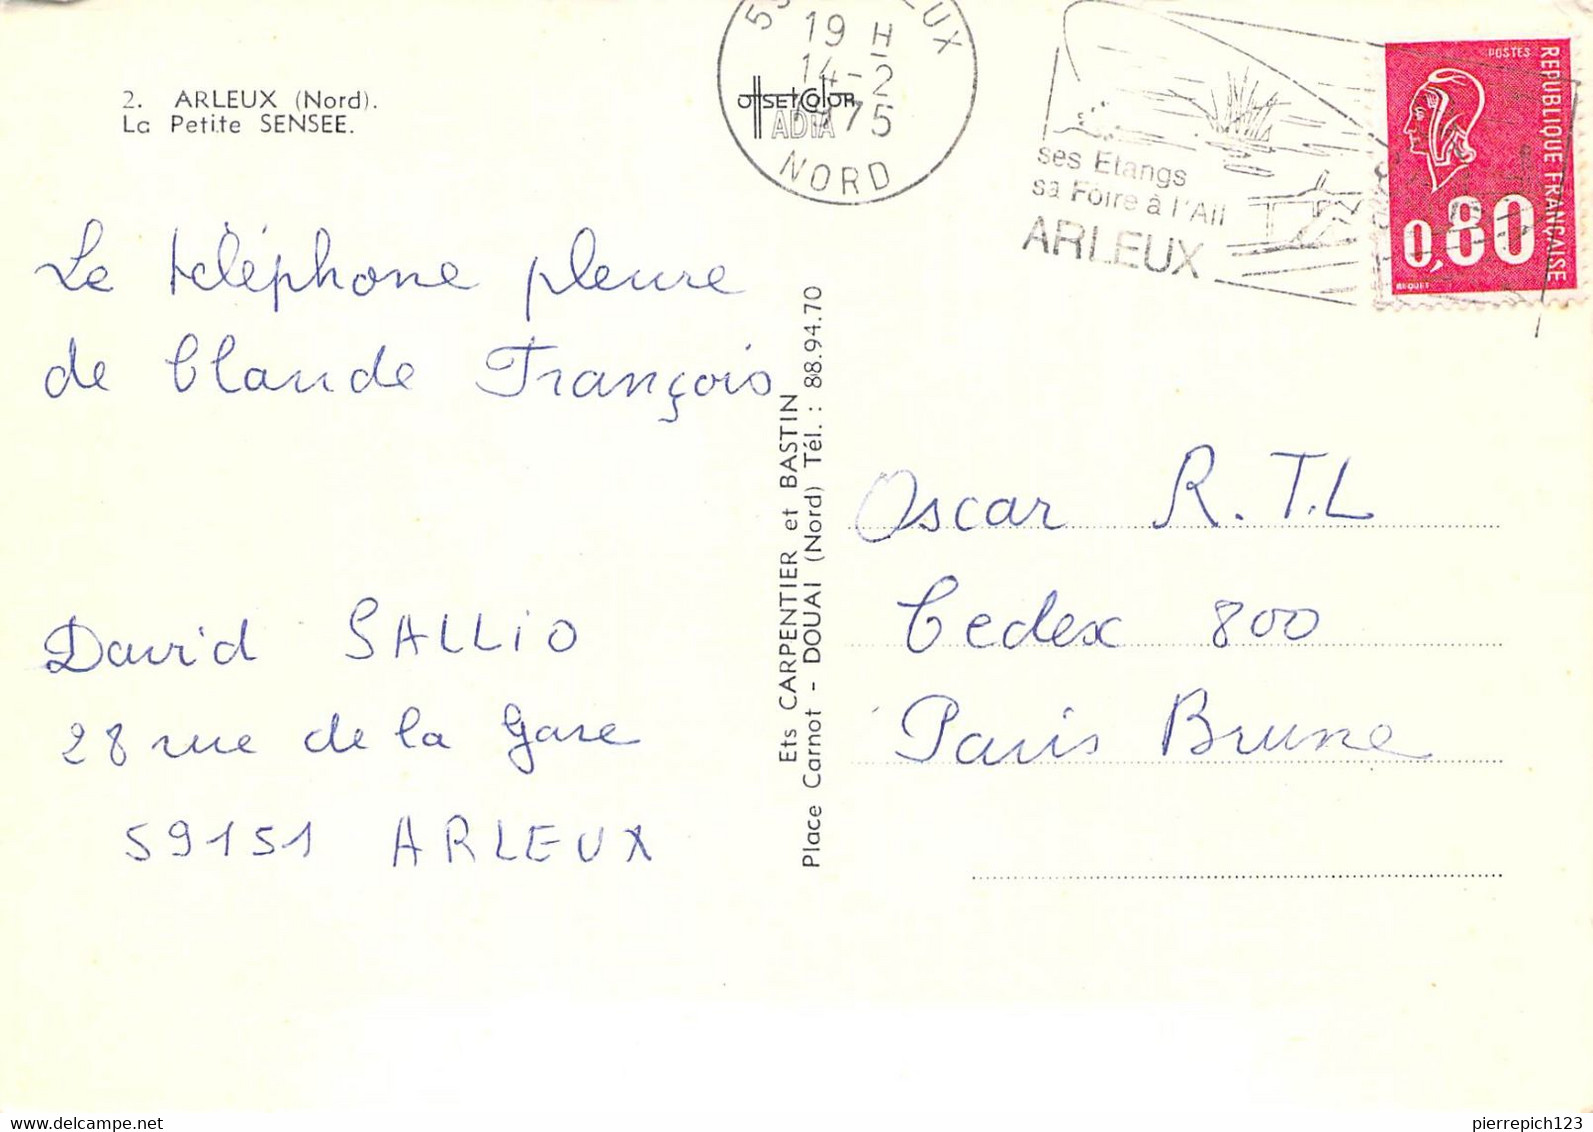 2. ARLEUX (Nord).
La Petite SENSEE.
19 H
14-2
1975
NORD
OFFSETCOLOR
ADIA
ses Etangs
sa Foire à l'Ail
ARLEUX
POSTES
REPUBLIQUE FRANÇAISE
0,80
BEQUET
Le téléphone pleure
de Claude François
David SALLIO
28 rue de la Gare
59151 ARLEUX
Ets CARPENTIER et BASTIN
Place Carnot - DOUAI (Nord) Tél. : 88.94.70
Oscar R.T.L
Cedex 800
Paris Brune
pierrepich123